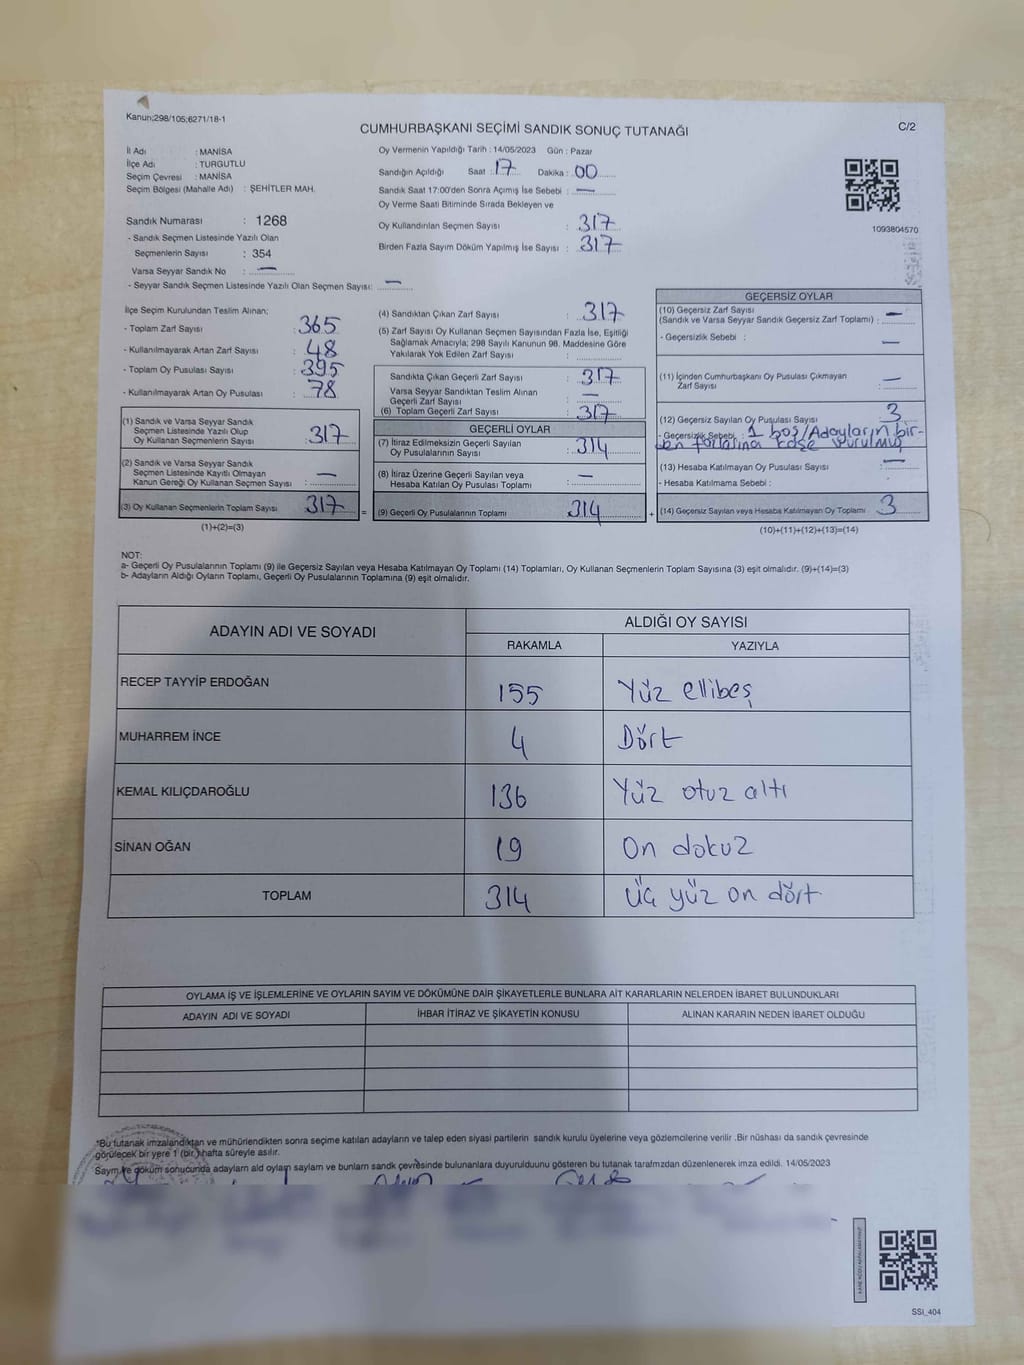 Kanun;298/105;6271/18-1
CUMHURBAŞKANI SEÇİMİ SANDIK SONUÇ TUTANAĞI
C/2
İl Adı : MANİSA
İlçe Adı : TURGUTLU
Seçim Çevresi : MANİSA
Seçim Bölgesi (Mahalle Adı) : ŞEHİTLER MAH.
Sandık Numarası : 1268
- Sandık Seçmen Listesinde Yazılı Olan
Seçmenlerin Sayısı : 354
Varsa Seyyar Sandık No : —
- Seyyar Sandık Seçmen Listesinde Yazılı Olan Seçmen Sayısı: —
Oy Vermenin Yapıldığı Tarih : 14/05/2023 Gün : Pazar
Sandığın Açıldığı Saat : 17 Dakika : 00
Sandık Saat 17:00'den Sonra Açımış İse Sebebi : —
Oy Verme Saati Bitiminde Sırada Bekleyen ve
Oy Kullandırılan Seçmen Sayısı : 317
Birden Fazla Sayım Döküm Yapılmış İse Sayısı : 317
1093804570
İlçe Seçim Kurulundan Teslim Alınan;
- Toplam Zarf Sayısı : 365
- Kullanılmayarak Artan Zarf Sayısı : 48
- Toplam Oy Pusulası Sayısı : 395
- Kullanılmayarak Artan Oy Pusulası : 78
(1) Sandık ve Varsa Seyyar Sandık
Seçmen Listesinde Yazılı Olup
Oy Kullanan Seçmenlerin Sayısı : 317
(2) Sandık ve Varsa Seyyar Sandık
Seçmen Listesinde Kayıtlı Olmayan
Kanun Gereği Oy Kullanan Seçmen Sayısı : —
(3) Oy Kullanan Seçmenlerin Toplam Sayısı : 317
(1)+(2)=(3)
(4) Sandıktan Çıkan Zarf Sayısı : 317
(5) Zarf Sayısı Oy Kullanan Seçmen Sayısından Fazla İse, Eşitliği
Sağlamak Amacıyla; 298 Sayılı Kanunun 98. Maddesine Göre
Yakılarak Yok Edilen Zarf Sayısı :
Sandıkta Çıkan Geçerli Zarf Sayısı : 317
Varsa Seyyar Sandıktan Teslim Alınan
Geçerli Zarf Sayısı : —
(6) Toplam Geçerli Zarf Sayısı : 317
GEÇERLİ OYLAR
(7) İtiraz Edilmeksizin Geçerli Sayılan
Oy Pusulalarının Sayısı : 314
(8) İtiraz Üzerine Geçerli Sayılan veya
Hesaba Katılan Oy Pusulası Toplamı : —
= (9) Geçerli Oy Pusulalarının Toplamı 314
GEÇERSİZ OYLAR
(10) Geçersiz Zarf Sayısı
(Sandık ve Varsa Seyyar Sandık Geçersiz Zarf Toplamı) : —
- Geçersizlik Sebebi : —
(11) İçinden Cumhurbaşkanı Oy Pusulası Çıkmayan
Zarf Sayısı : —
(12) Geçersiz Sayılan Oy Pusulası Sayısı : 3
- Geçersizlik Sebebi : 1 boş/Adayların bir-
den fazlasına kaşe vurulmuş
(13) Hesaba Katılmayan Oy Pusulası Sayısı : —
- Hesaba Katılmama Sebebi :
+ (14) Geçersiz Sayılan veya Hesaba Katılmayan Oy Toplamı 3
(10)+(11)+(12)+(13)=(14)
NOT:
a- Geçerli Oy Pusulalarının Toplamı (9) ile Geçersiz Sayılan veya Hesaba Katılmayan Oy Toplamı (14) Toplamları, Oy Kullanan Seçmenlerin Toplam Sayısına (3) eşit olmalıdır. (9)+(14)=(3)
b- Adayların Aldığı Oyların Toplamı, Geçerli Oy Pusulalarının Toplamına (9) eşit olmalıdır.
ADAYIN ADI VE SOYADI ALDIĞI OY SAYISI
RAKAMLA YAZIYLA
RECEP TAYYİP ERDOĞAN 155 Yüz ellibeş
MUHARREM İNCE 4 Dört
KEMAL KILIÇDAROĞLU 136 Yüz otuz altı
SİNAN OĞAN 19 On dokuz
TOPLAM 314 üç yüz on dört
OYLAMA İŞ VE İŞLEMLERİNE VE OYLARIN SAYIM VE DÖKÜMÜNE DAİR ŞİKAYETLERLE BUNLARA AİT KARARLARIN NELERDEN İBARET BULUNDUKLARI
ADAYIN ADI VE SOYADI İHBAR İTİRAZ VE ŞİKAYETİN KONUSU ALINAN KARARIN NEDEN İBARET OLDUĞU
*Bu tutanak imzalandıktan ve mühürlendikten sonra seçime katılan adayların ve talep eden siyasi partilerin sandık kurulu üyelerine veya gözlemcilerine verilir .Bir nüshası da sandık çevresinde
görülecek bir yere 1 (bir) hafta süreyle asılır.
Saym ve döküm sonucunda adaylarn ald oylarn saylarn ve bunlarn sandk çevresinde bulunanlara duyurulduunu gösteren bu tutanak tarafmzdan düzenlenerek imza edildi. 14/05/2023
SSI_404